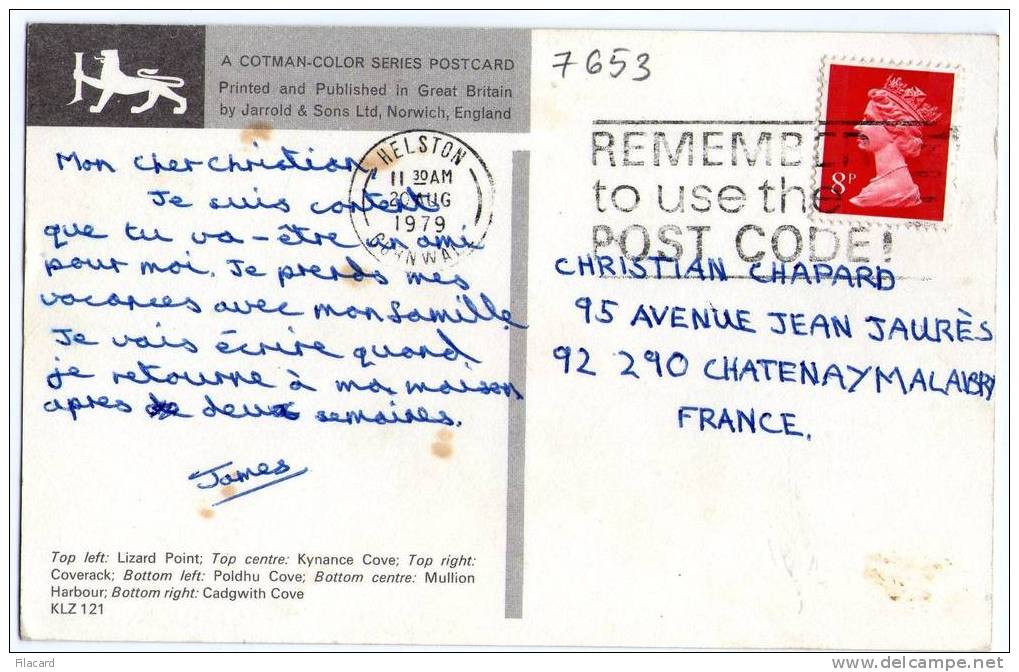 A COTMAN-COLOR SERIES POSTCARD
Printed and Published in Great Britain
by Jarrold & Sons Ltd, Norwich, England
Mon cher Christian,
Je suis contents
que tu va-être an ami
pour moi. Je prends mes
vacances avec mon famille
Je vais écrire quand
je retourne à ma maison
apres deux semaines.
James
Top left: Lizard Point; Top centre: Kynance Cove; Top right:
Coverack; Bottom left: Poldhu Cove; Bottom centre: Mullion
Harbour; Bottom right: Cadgwith Cove
KLZ 121
HELSTON
11 30 AM
20 AUG
1979
CORNWALL
7653
REMEMBER
to use the
POST CODE!
8P
CHRISTIAN CHAPARD
95 AVENUE JEAN JAURÈS
92 290 CHATENAY MALABRY
FRANCE.
Filacard
www.delcampe.net